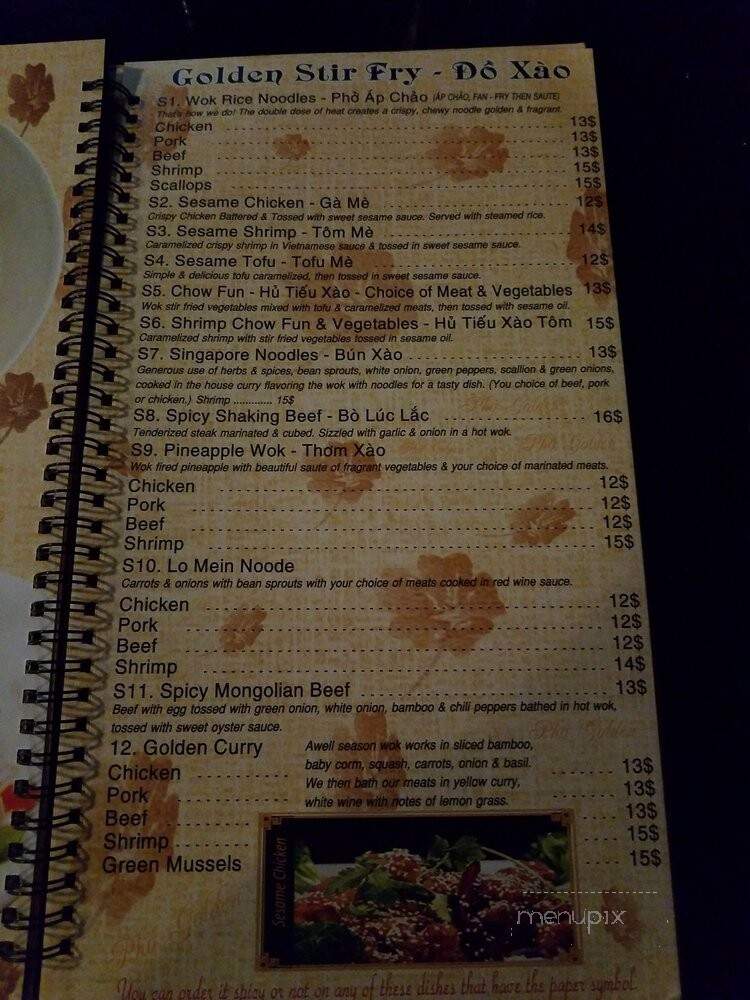 Golden Stir Fry - Đồ Xào
S1. Wok Rice Noodles - Phở Áp Chảo (ÁP CHẢO, FAN - FRY THEN SAUTE)
That's how we do! The double dose of heat creates a crispy, chewy noodle golden & fragrant.
Chicken 13$
Pork 13$
Beef 13$
Shrimp 15$
Scallops 15$
S2. Sesame Chicken - Gà Mè 12$
Crispy Chicken Battered & Tossed with sweet sesame sauce. Served with steamed rice.
S3. Sesame Shrimp - Tôm Mè 14$
Caramelized crispy shrimp in Vietnamese sauce & tossed in sweet sesame sauce.
S4. Sesame Tofu - Tofu Mè 12$
Simple & delicious tofu caramelized, then tossed in sweet sesame sauce.
S5. Chow Fun - Hủ Tiếu Xào - Choice of Meat & Vegetables 13$
Wok stir fried vegetables mixed with tofu & caramelized meats, then tossed with sesame oil.
S6. Shrimp Chow Fun & Vegetables - Hủ Tiếu Xào Tôm 15$
Caramelized shrimp with stir fried vegetables tossed in sesame oil.
S7. Singapore Noodles - Bún Xào 13$
Generous use of herbs & spices, bean sprouts, white onion, green peppers, scallion & green onions,
cooked in the house curry flavoring the wok with noodles for a tasty dish. (You choice of beef, pork
or chicken.) Shrimp ............. 15$
S8. Spicy Shaking Beef - Bò Lúc Lắc 16$
Tenderized steak marinated & cubed. Sizzled with garlic & onion in a hot wok.
S9. Pineapple Wok - Thơm Xào
Wok fired pineapple with beautiful saute of fragrant vegetables & your choice of marinated meats.
Chicken 12$
Pork 12$
Beef 12$
Shrimp 15$
S10. Lo Mein Noode
Carrots & onions with bean sprouts with your choice of meats cooked in red wine sauce.
Chicken 12$
Pork 12$
Beef 12$
Shrimp 14$
S11. Spicy Mongolian Beef 13$
Beef with egg tossed with green onion, white onion, bamboo & chili peppers bathed in hot wok,
tossed with sweet oyster sauce.
12. Golden Curry
Awell season wok works in sliced bamboo,
baby corn, squash, carrots, onion & basil.
We then bath our meats in yellow curry,
white wine with notes of lemon grass.
Chicken 13$
Pork 13$
Beef 13$
Shrimp 15$
Green Mussels 15$
Sesame Chicken
menupix
You can order it spicy or not on any of these dishes that have the paper symbol.